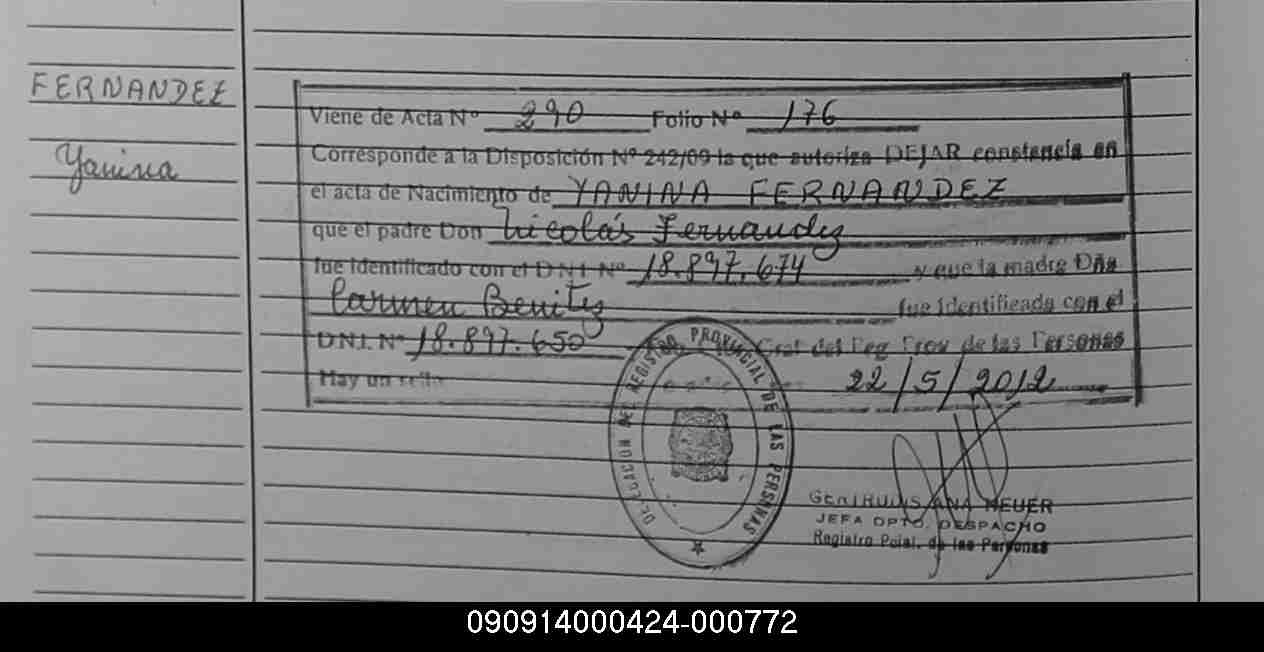 FERNANDEZ
Yanina
Viene de Acta Nº 290 Folio Nº 176
Corresponde a la Disposición Nº 242/09 la que autoriza DEJAR constancia en
el acta de Nacimiento de YANINA FERNANDEZ
que el padre Don Nicolás Fernandez
fue identificado con el D.N.I. Nº 18.897.674 y que la madre Dña
Carmen Benitez fue identificada con el
D.N.I. Nº 18.897.650 Gral del Reg Prov de las Personas
Hay un sello 22/5/2012
DELEGACION DEL REGISTRO PROVINCIAL DE LAS PERSONAS
ANA HEUER
JEFA DPTO. DESPACHO
Registro Pcial. de las Personas
090914000424-000772